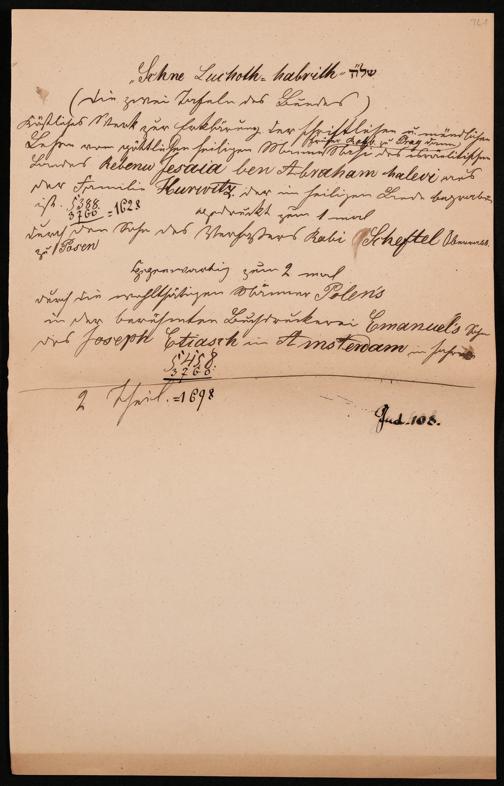 761
"Schne Luchoth-habrith" של״ה
(die zwei Tafeln des Bundes)
Köstliches Werk zur Erklärung der schriftlichen u. mündlichen
Lehre vom göttlichen heiligen Manne des israelitischen
Landes Rebenu Jesaia ben Abraham halevi aus
der Familie Hurwitz, der im heiligen Lande begraben
ist. 5388
3760 = 1628 gedruckt zum 1 mal
durch den Sohn des Verfassers Rabi Scheftel
zu Posen
Gegenwärtig zum 2 mal
durch die wohlthätigen Männer Polens
in der berühmten Buchdruckerei Emanuel's
des Joseph Etiasch in Amsterdam im Jahre
5458
3760
2 Theil. =1698
Jud. 108.